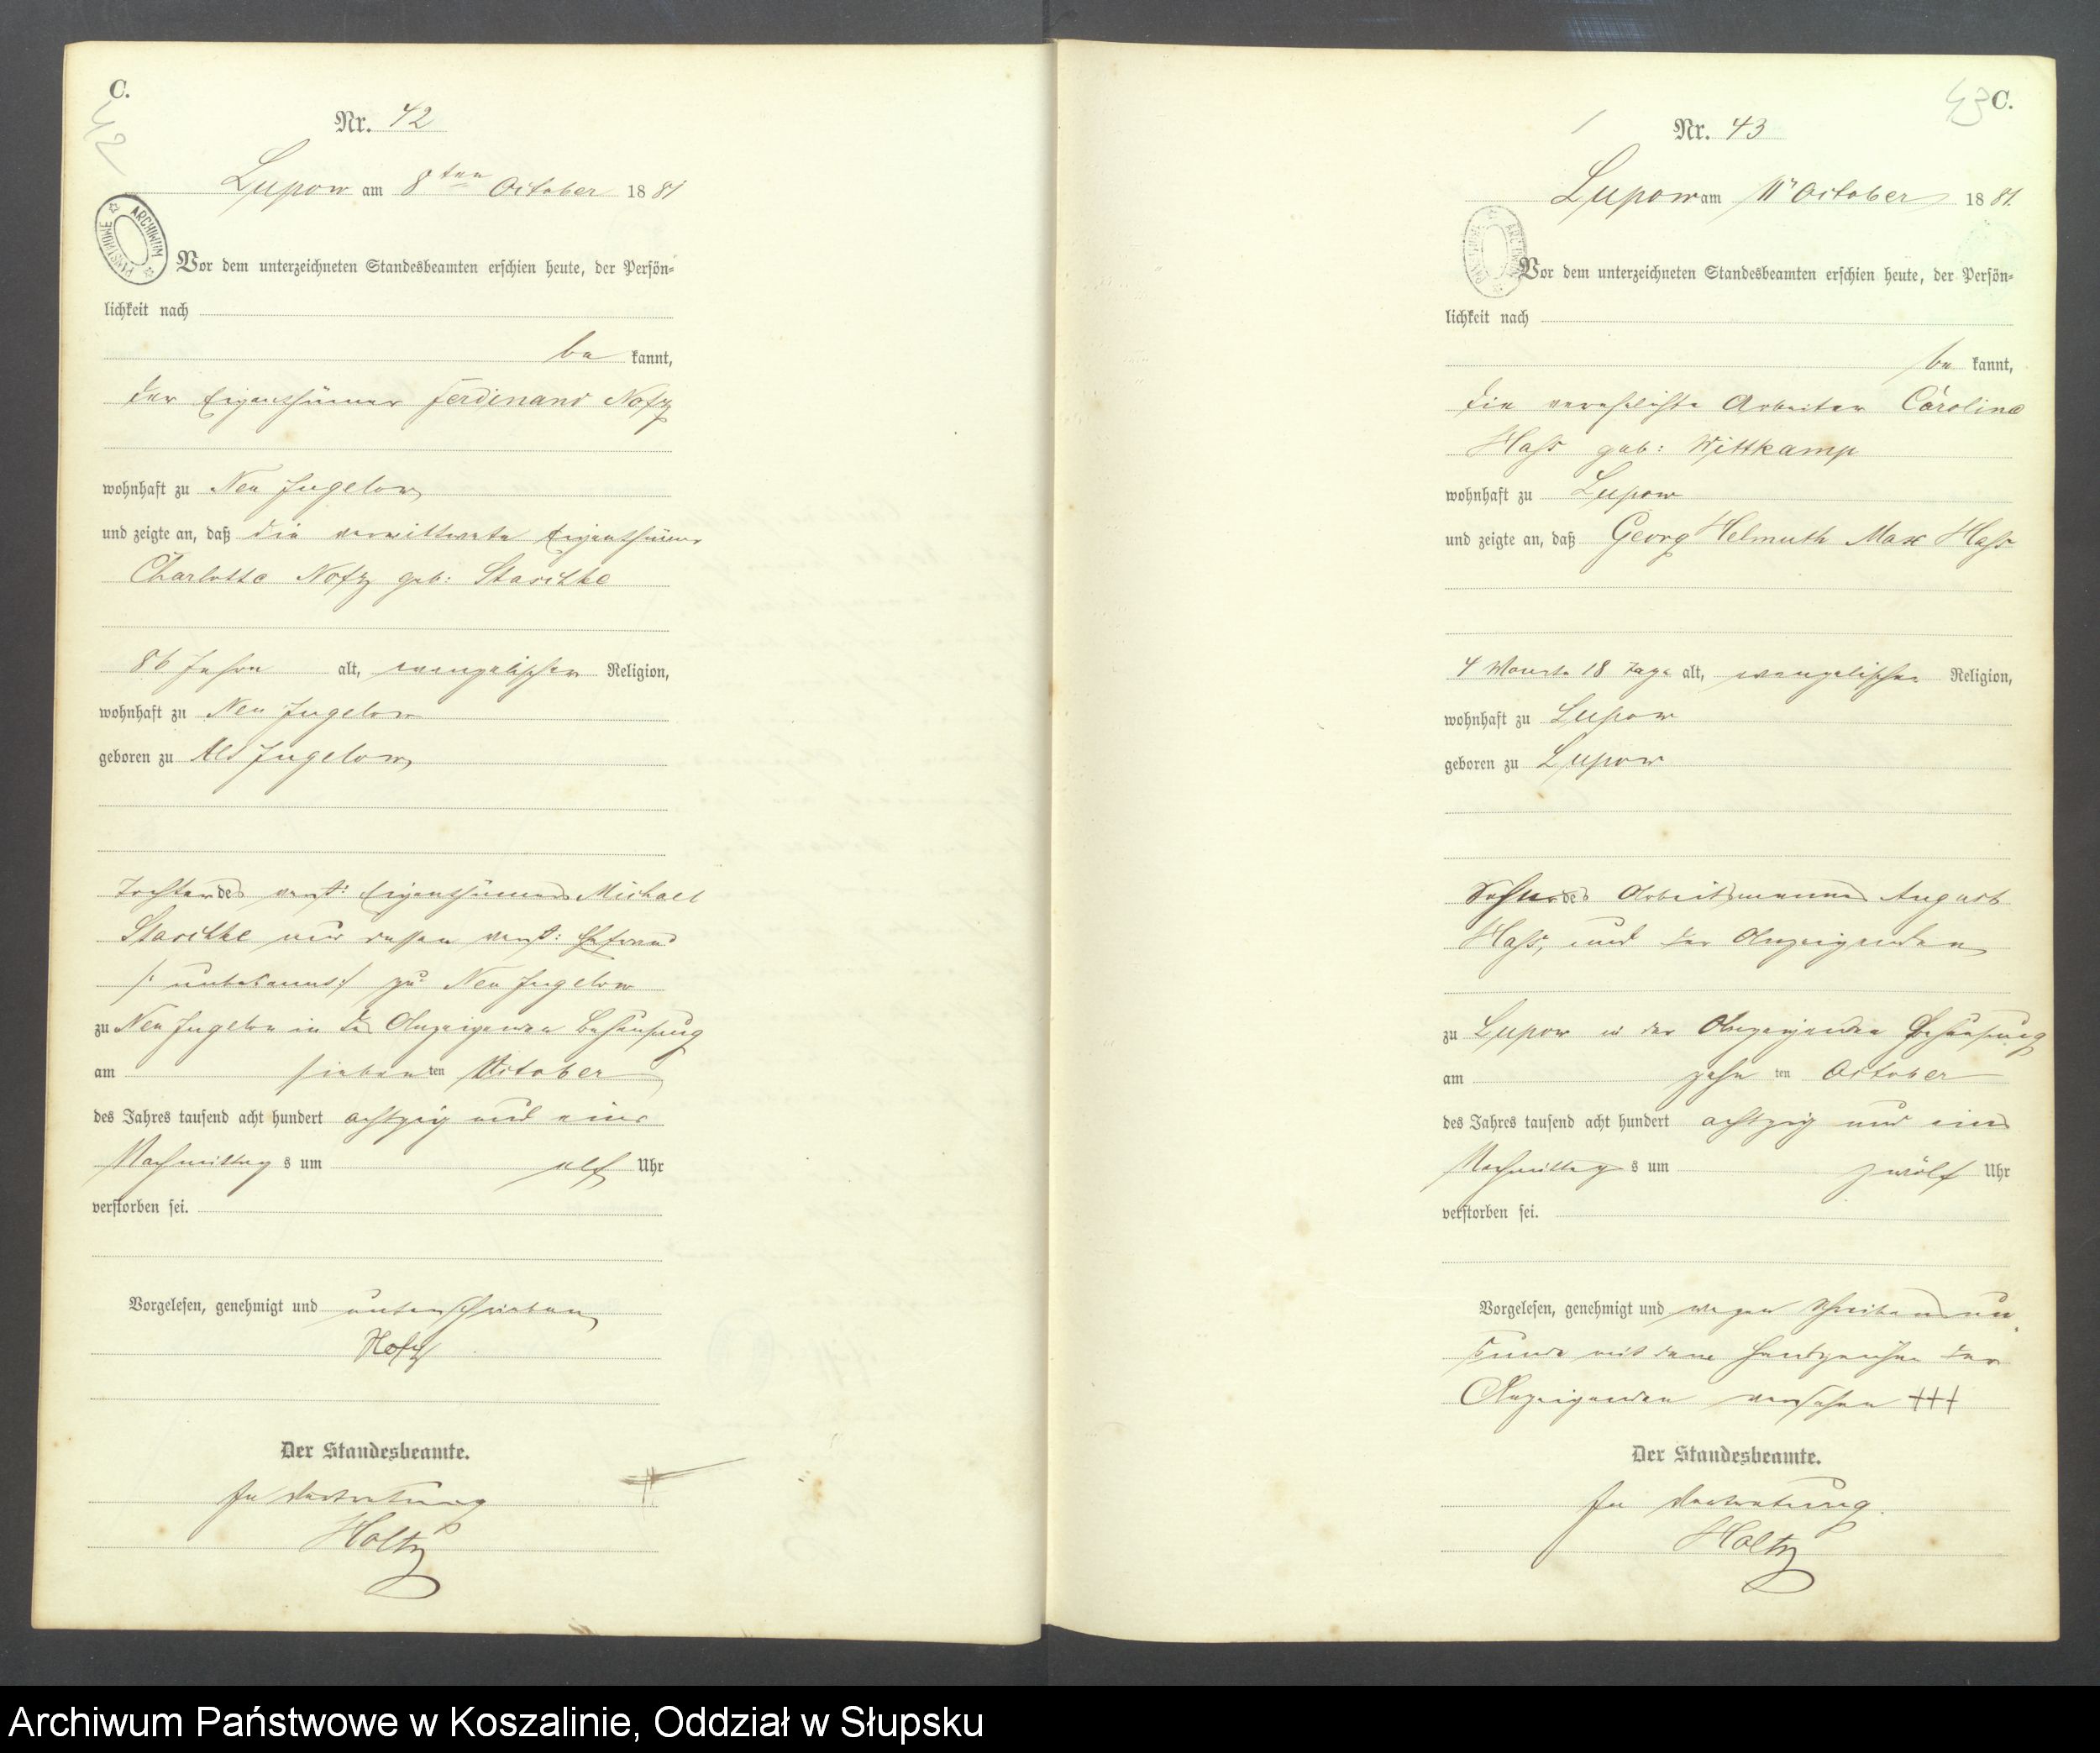 C.
42
Nr. 42
Lupow am 8ten October 1881
ARCHIWUM PAŃSTWOWE
Vor dem unterzeichneten Standesbeamten erschien heute, der Persön-
lichkeit nach
be kannt,
der Eigenthümer Ferdinand Notz
wohnhaft zu Neu Jugelow
und zeigte an, daß die verwittwete Eigenthümer
Charlotte Notz geb: Staschke
86 Jahre alt, evangelischer Religion,
wohnhaft zu Neu Jugelow
geboren zu Alt Jugelow
Tochter des verst: Eigenthümers Michael
Staschke und dessen verst: Ehefrau
/: unbekannt :/ zu Neu Jugelow
zu Neu Jugelow in des Anzeigenden Behausung
am sieben ten October
des Jahres tausend acht hundert achtzig und eins
Nachmittag s um elf Uhr
verstorben sei.
Vorgelesen, genehmigt und unterschrieben
Notz
Der Standesbeamte.
In Vertretung
Holtz
43 C.
Nr. 43
Lupow am 11n October 1881.
ARCHIWUM PAŃSTWOWE
Vor dem unterzeichneten Standesbeamten erschien heute, der Persön-
lichkeit nach
be kannt,
die verehelichte Arbeiter Caroline
Hass geb: Wittkamp
wohnhaft zu Lupow
und zeigte an, daß Georg Helmuth Max Hass
4 Monate 18 Tage alt, evangelischer Religion,
wohnhaft zu Lupow
geboren zu Lupow
Sohn des Arbeitsmannes August
Hass, und der Anzeigenden
zu Lupow in der Anzeigenden Behausung
am zehn ten October
des Jahres tausend acht hundert achtzig und eins
Nachmittag s um zwölf Uhr
verstorben sei.
Vorgelesen, genehmigt und wegen Schreibensun
kunde mit dem Handzeichen der
Anzeigenden versehen +++
Der Standesbeamte.
In Vertretung.
Holtz
Archiwum Państwowe w Koszalinie, Oddział w Słupsku